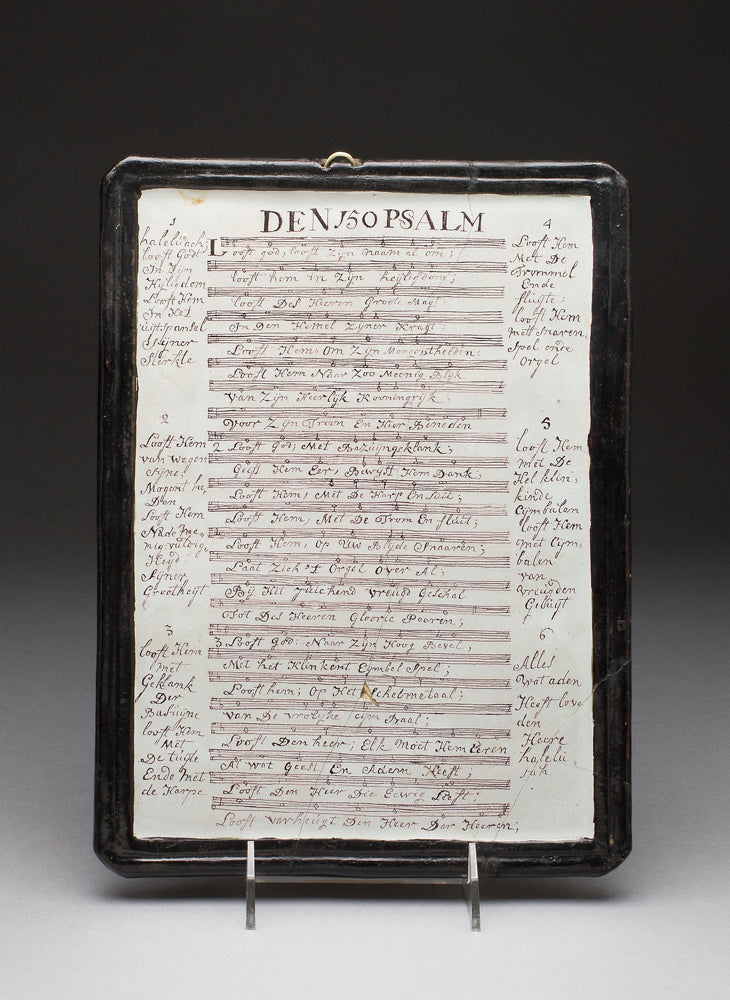 DEN 150 PSALM
1
halelujah
looft Godt
In Zijn
Hijligdom
Looft Hem
In Het
uijtspansel
Sijner
Sterkte
2
Looft Hem
van wegen
sijne
Mogenthe
Den
Looft Hem
Na de me
nigvuldig
Heyd
Sijner
Grootheyt
3
looft Hem
met
Geklank
Der
Basuijne
looft Hem
Met
De Luijte
Ende Met
de Harpe
Looft god; looft Zijn naam al om;
looft hem in Zijn heijligdom;
looft Des Heeren Groote Magt
In Den Hemel Zijner Kragt;
Looft Hem; Om Zijn Mogentheeden;
Looft Hem Naar Zoo Meenig Blijk
Van Zijn Heerlijk Kooningrijk
Voor Zijn Troon En Hier Beneden
2 Looft God; Met Bazuijngeklank;
Geeft Hem Eer; Bewijst Hem Dank;
Looft Hem; Met De Harp En Luit;
Looft Hem, Met De Trom En fluit;
Looft Hem; Op Uw Blijde Snaaren;
Laat Zich 't Orgel Over Al;
Bij Het Juichend vreugd Geschal
Tot Des Heeren Gloorie Paaren;
3 Looft god: Naar Zijn Hoog Bevel,
Met het Klinkent Cymbel Spel;
Looft hem; Op Het Schelmetaal;
van De vrolijke Cijmbaal;
Looft Den heer; Elk Moet Hem Eeren
Al wat Geest En Adem Heeft;
Looft Den Heer Die Eewig Leeft;
Looft verheugt Den Heer Der Heeren;
4
Looft Hem
Met De
Trommel
Ende
fluijte;
looft Hem
mett Snaren
Spel ende
Orgel
5
looft Hem
met De
Hel klin;
kinde
Cymbalen
looft Hem
met Cijm,
balen
van
vreugden
Geluijt
6
Alles
Wat aden
Heeft love
den
Heere
halelu-
jah